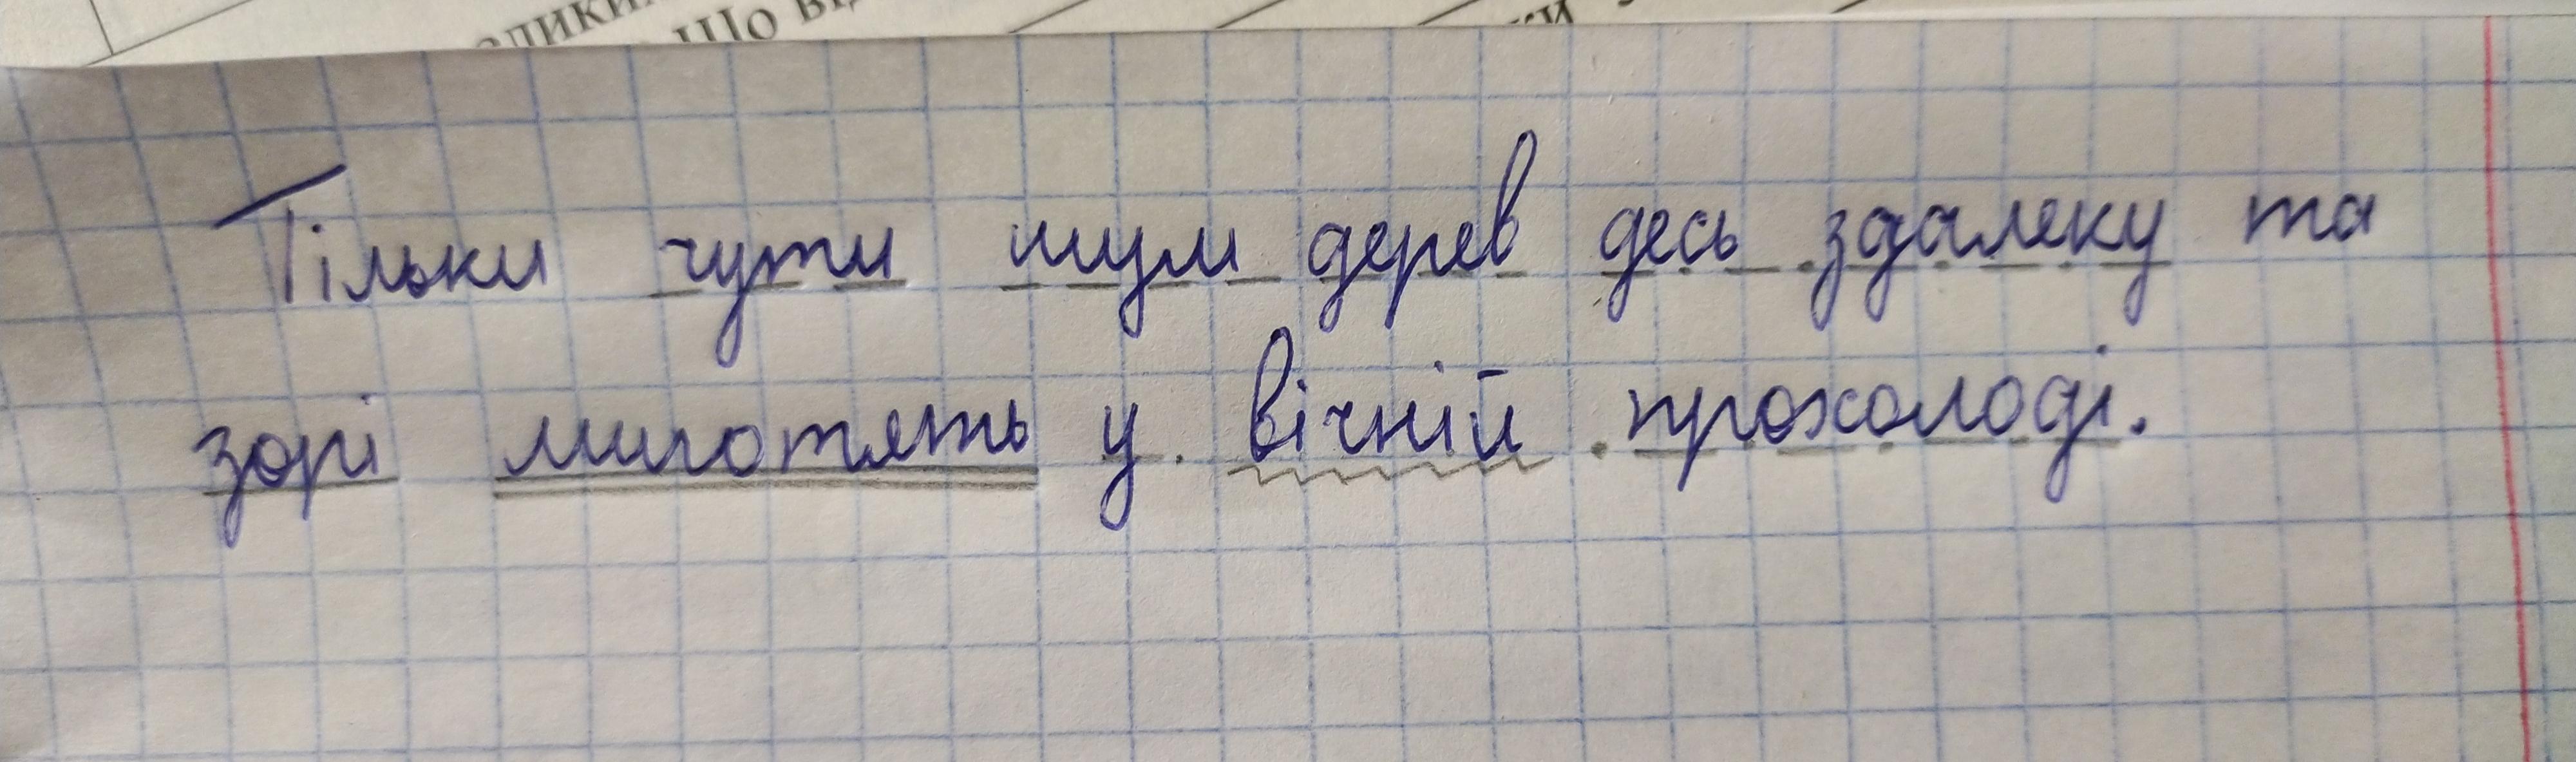 Що ві
ки
Тільки чути шум дерев десь здалеку та
зорі миготять у вічній прохолоді.